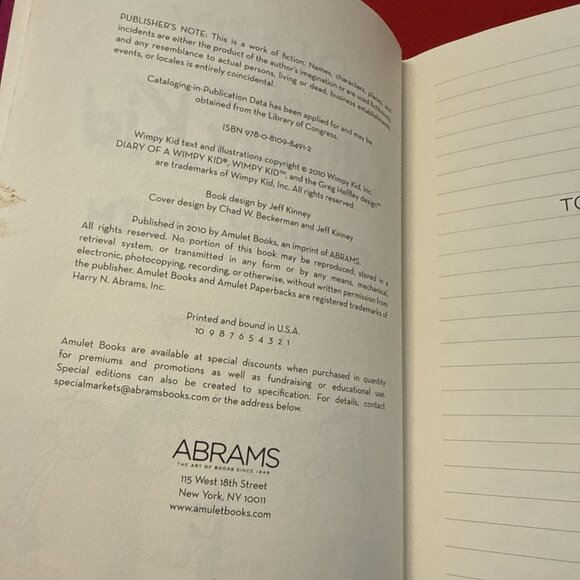 PUBLISHER'S NOTE: This is a work of fiction. Names, characters, places, and
incidents are either the product of the author's imagination or are used fictitiously,
and any resemblance to actual persons, living or dead, business establishments,
events, or locales is entirely coincidental.
Cataloging-in-Publication Data has been applied for and may be
obtained from the Library of Congress.
ISBN 978-0-8109-8491-2
Wimpy Kid text and illustrations copyright © 2010 Wimpy Kid, Inc.
DIARY OF A WIMPY KID®, WIMPY KID™, and the Greg Heffley design™
are trademarks of Wimpy Kid, Inc. All rights reserved.
Book design by Jeff Kinney
Cover design by Chad W. Beckerman and Jeff Kinney
Published in 2010 by Amulet Books, an imprint of ABRAMS.
All rights reserved. No portion of this book may be reproduced, stored in a
retrieval system, or transmitted in any form or by any means, mechanical,
electronic, photocopying, recording, or otherwise, without written permission from
the publisher. Amulet Books and Amulet Paperbacks are registered trademarks of
Harry N. Abrams, Inc.
Printed and bound in U.S.A.
10 9 8 7 6 5 4 3 2 1
Amulet Books are available at special discounts when purchased in quantity
for premiums and promotions as well as fundraising or educational use.
Special editions can also be created to specification. For details, contact
specialmarkets@abramsbooks.com or the address below.
ABRAMS
THE ART OF BOOKS SINCE 1949
115 West 18th Street
New York, NY 10011
www.amuletbooks.com
TO